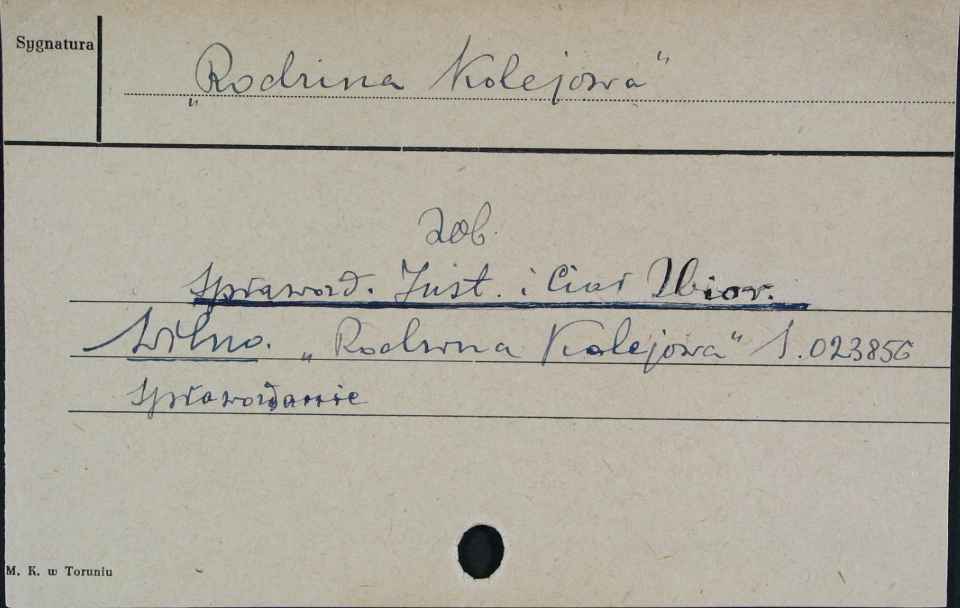 Sygnatura
„Rodzina Kolejowa"
Zob.
Sprawozd. Inst. i Ciał Zbior.
Wilno. „Rodzina Kolejowa" S.023856
Sprawozdanie
M. K. w Toruniu